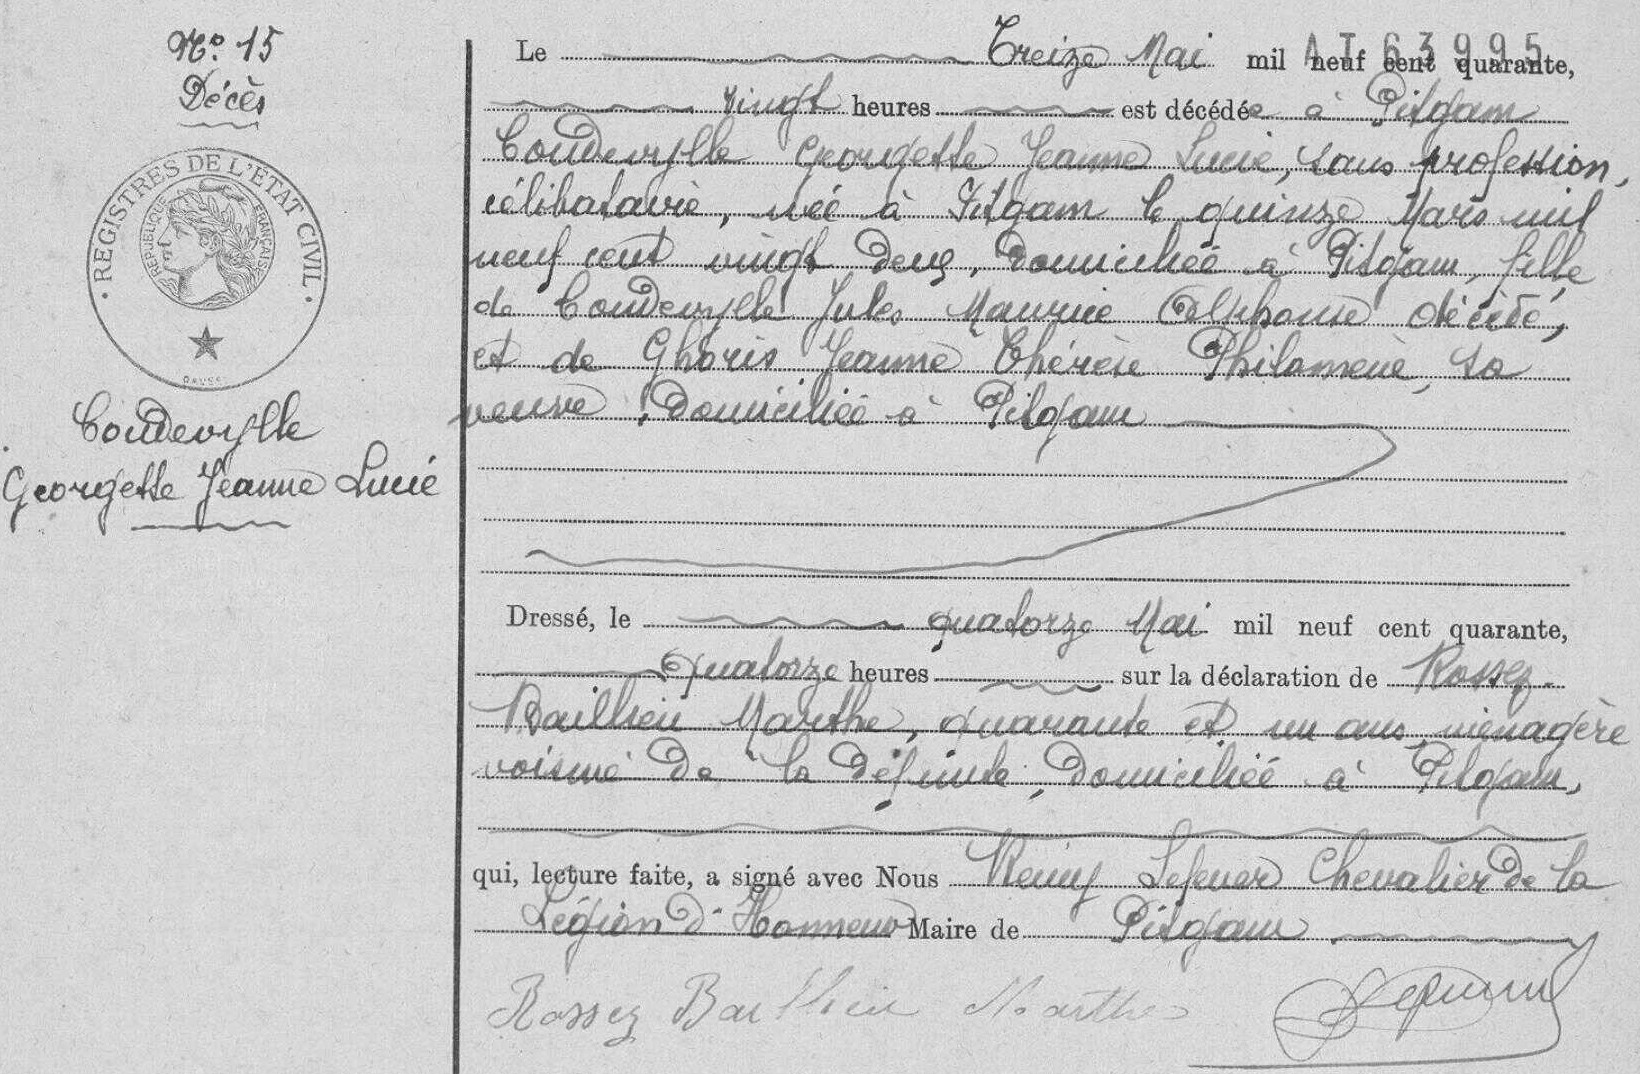 N° 15
Décès
REGISTRES DE L'ÉTAT CIVIL
RÉPUBLIQUE FRANÇAISE
Coudevylle
Georgette Jeanne Lucie
AT 63995
Le Treize Mai mil neuf cent quarante,
vingt heures est décédée à Pitgam
Coudevylle Georgette Jeanne Lucie, sans profession,
célibataire, née à Pitgam le quinze Mars mil
neuf cent vingt deux, domiciliée à Pitgam, fille
de Coudevylle Jules Maurice Alphonse décédé,
et de Ghoris Jeanne Thérèse Philomène, sa
veuve, domiciliée à Pitgam
Dressé, le quatorze Mai mil neuf cent quarante,
Quatorze heures sur la déclaration de Rossez-
Baillieu Marthe, quarante et un ans, ménagère
voisine de la défunte, domiciliée à Pitgam,
qui, lecture faite, a signé avec Nous Remy Lefever Chevalier de la
Légion d'Honneur Maire de Pitgam
Rossez Baillieu Marthe